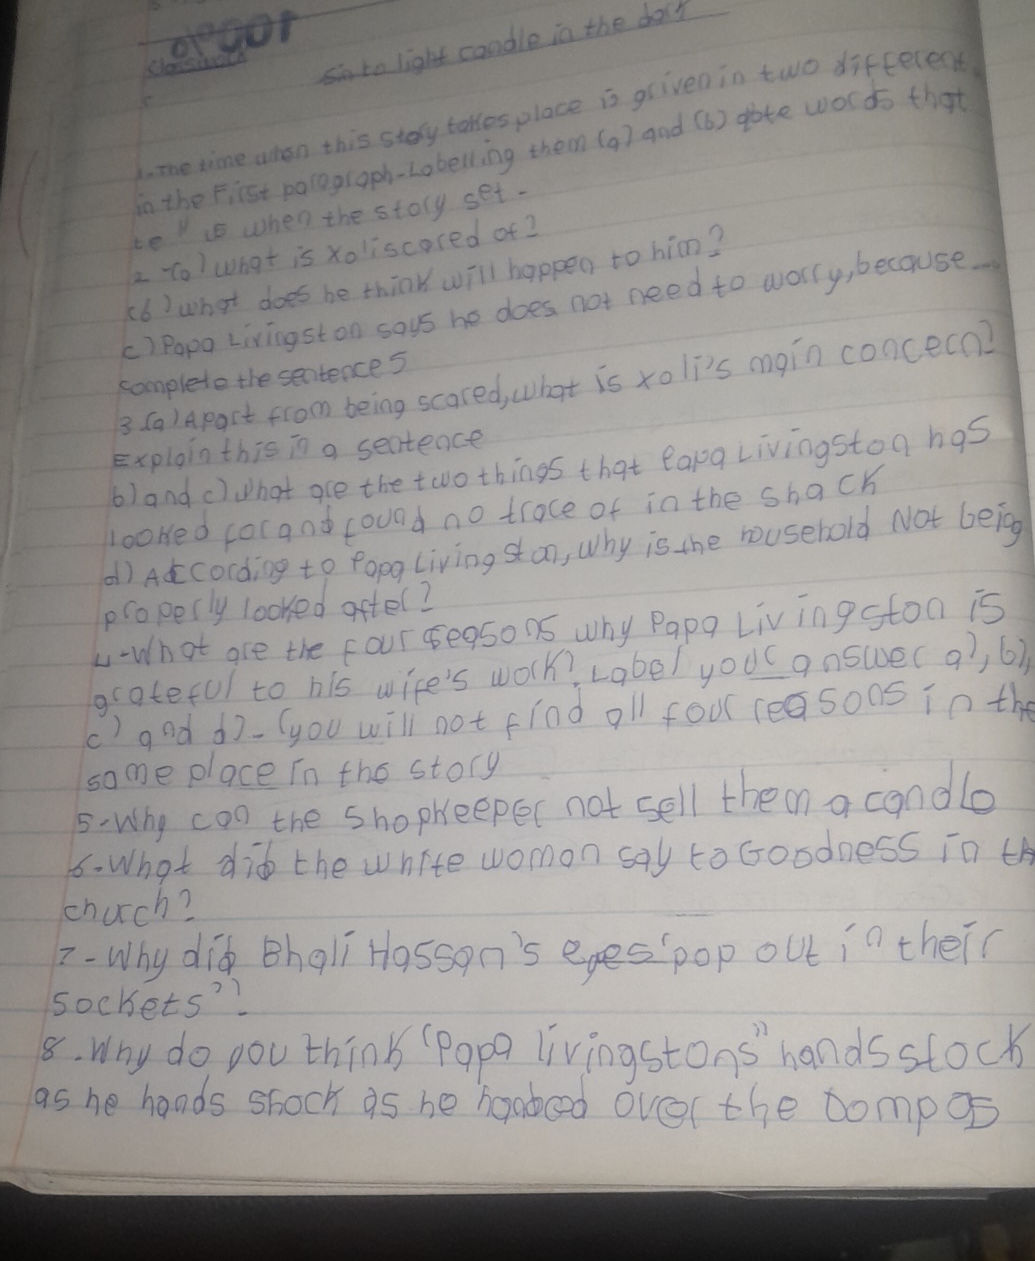 Classwork
Sin to light candle in the dark
1-The time when this story takes place is griven in two different
in the First paragraph-Labelling them (a) and (b) qote words that
te" is when the story set-
2-(a) what is xoliscared of?
(b) what does he think will happen to him?
c) Papa Livingston says he does not need to worry, because...
complete the sentences
3.(a) Apart from being scared, what is xoli's main concern?
Explain this in a sentence
b) and c) what are the two things that Papa Livingston has
looked for and found no trace of in the shack
d) According to Papa Livingston, why is the household Not beig
properly looked after?
4-What are the four reasons why Papa Livingston is
grateful to his wife's work? Label your answer a), b),
c) and d)-(you will not find all four reasons in the
same place in the story
5-Why can the shopkeeper not sell them a candle
6-What did the white woman say to Goodness in th
church?
7-Why did Bhali Hassan's eyes 'pop out in their
sockets"?
8.Why do you think "Papa livingstons" hands slock
as he hands shock as he handed over the Dompas